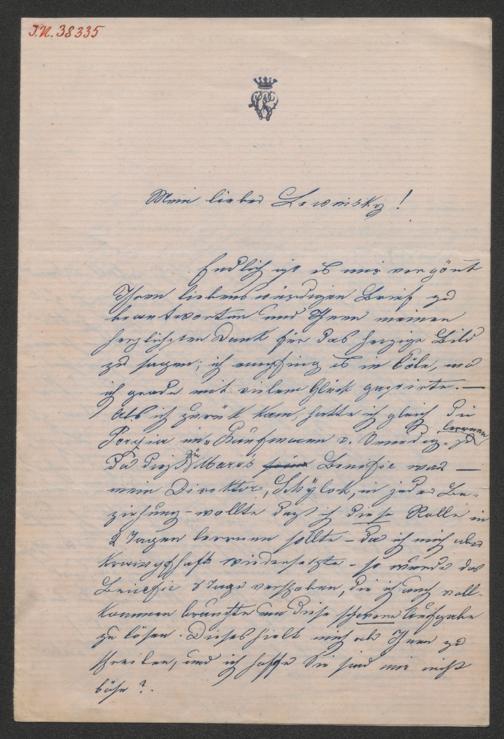 I.N. 38335
Mein lieber Lewinsky!
Endlich ist es mir vergönnt
Ihren liebenswürdigen Brief zu
beantworten und Ihnen meinen
herzlichsten Dank für das herzige Bild
zu sagen; ich empfing es in Cöln, wo
ich grade mit vielem Glück gastirte. —
Als ich zurük kam, hatte ich gleich die
Porzia im Kaufmann v. Venedig zu lernen
da dieß Maries Benefice war —
mein Direktor, Schÿlok, in jeder Be-
ziehung – wollte daß ich diese Rolle in
2 Tagen lernen sollte – da ich mich aber
krampfhaft wiedersetzte – so wurde das
Benefice 8 Tage verschoben, die ich auch voll-
kommen brauchte um diese schöne Aufgabe
zu lösen. Dieses hielt mich ab Ihnen zu
schreiben, und ich hoffe Sie sind mir nicht
böse?.